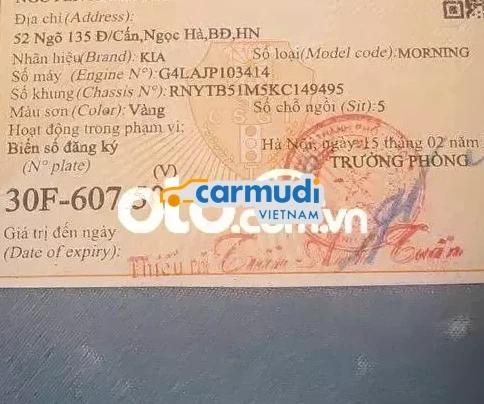 Địa chỉ (Address):
52 Ngõ 135 Đ/Cấn,Ngọc Hà,BĐ,HN
Nhãn hiệu(Brand): KIA Số loại(Model code):MORNING
Số máy (Engine N°):G4LAJP103414
Số khung (Chassis N°):RNYTB51M5KC149495
Màu sơn (Color): Vàng Số chỗ ngồi (Sit):5
Hoạt động trong phạm vi:
Biển số đăng ký Hà Nội, ngày 15 tháng 02 năm
(N° plate) (V) TRƯỞNG PHÒNG
30F-607
carmudi
VIETNAM
oto.com.vn
Giá trị đến ngày
(Date of expiry):
Thiếu tá